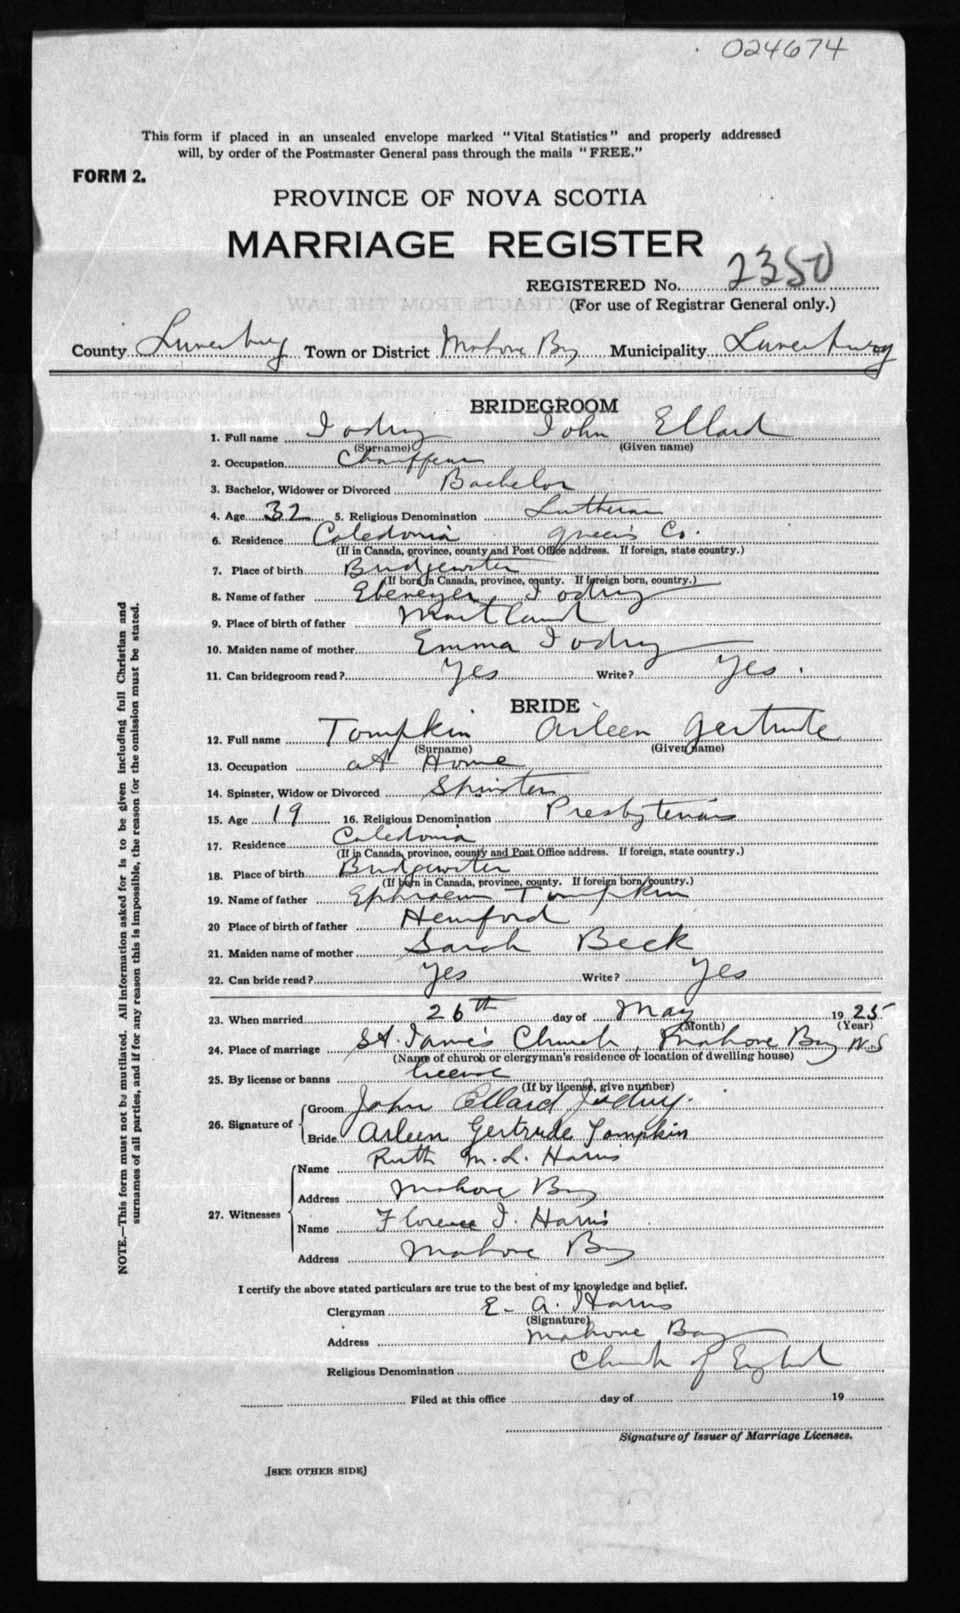 024674
This form if placed in an unsealed envelope marked "Vital Statistics" and properly addressed
will, by order of the Postmaster General pass through the mails "FREE."
FORM 2.
PROVINCE OF NOVA SCOTIA
MARRIAGE REGISTER
REGISTERED No. 2350
(For use of Registrar General only.)
County Lunenburg Town or District Mahone Bay Municipality Lunenburg
BRIDEGROOM
1. Full name Jodrey John Ellard
(Surname) (Given name)
2. Occupation Chauffeur
3. Bachelor, Widower or Divorced Bachelor
4. Age 32 5. Religious Denomination Lutheran
6. Residence Caledonia Queens Co.
(If in Canada, province, county and Post Office address. If foreign, state country.)
7. Place of birth Bridgewater
(If born in Canada, province, county. If foreign born, country.)
8. Name of father Ebenezer Jodrey
9. Place of birth of father Maitland
10. Maiden name of mother Emma Jodrey
11. Can bridegroom read? Yes Write? Yes.
BRIDE
12. Full name Tompkin Arleen Gertrude
(Surname) (Given name)
13. Occupation at Home
14. Spinster, Widow or Divorced Spinster
15. Age 19 16. Religious Denomination Presbyterian
17. Residence Caledonia
(If in Canada, province, county and Post Office address. If foreign, state country.)
18. Place of birth Bridgewater
(If born in Canada, province, county. If foreign born, country.)
19. Name of father Ephraem Tompkin
20 Place of birth of father Hemford
21. Maiden name of mother Sarah Beck
22. Can bride read? Yes Write? Yes
23. When married 26th day of May 1925
(Month) (Year)
24. Place of marriage St. James Church, Mahone Bay N.S
(Name of church or clergyman's residence or location of dwelling house)
25. By license or banns license
(If by license, give number)
26. Signature of Groom John Ellard Jodrey.
Bride Arleen Gertrude Tompkin
27. Witnesses Name Ruth M. L. Harris
Address Mahone Bay
Name Florence I. Harris
Address Mahone Bay
I certify the above stated particulars are true to the best of my knowledge and belief.
Clergyman E. A. Harris
(Signature)
Address Mahone Bay
Religious Denomination Church of England
Filed at this office day of 19
Signature of Issuer of Marriage Licenses.
(SEE OTHER SIDE)
NOTE.—This form must not be mutilated. All information asked for is to be given including full Christian and
surnames of all parties, and if for any reason this is impossible, the reason for the omission must be stated.